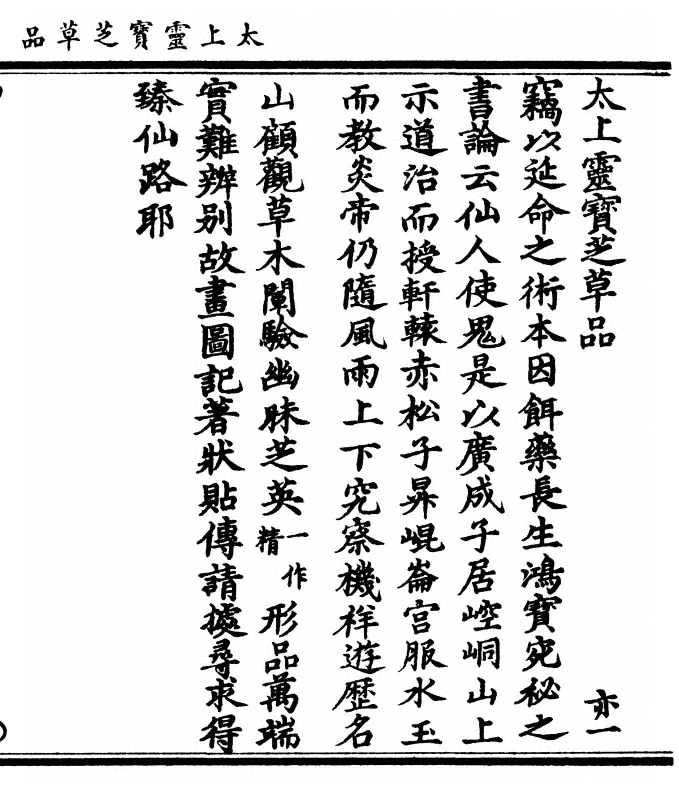 太上靈寶芝草品
太上靈寶芝草品 亦一
竊以延命之術本因餌藥長生鴻寶宛秘之
書論云仙人使鬼是以廣成子居崆峒山上
示道治而授軒轅赤松子昇崐崙宫服水玉
而教炎帝仍隨風雨上下究察機祥遊歷名
山顧觀草木闡驗幽昧芝英一作精形品萬端
實難辨别故畫圖記著狀貼傳請據尋求得
臻仙路耶